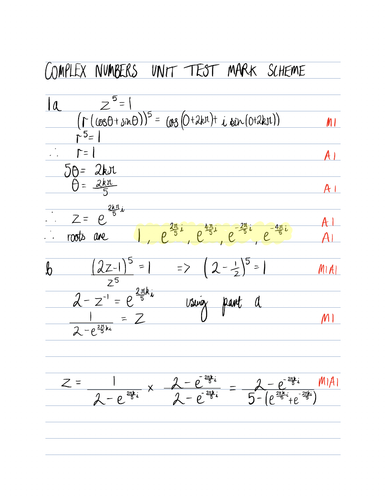 COMPLEX NUMBERS UNIT TEST MARK SCHEME
1a z^5 = 1
(r(cosθ + isinθ))^5 = cos(0+2kπ) + i sin(0+2kπ) M1
r^5 = 1
∴ r = 1 A1
5θ = 2kπ
θ = 2kπ/5 A1
∴ z = e^(2kπ/5 i) A1
∴ roots are 1, e^(2π/5 i), e^(4π/5 i), e^(-2π/5 i), e^(-4π/5 i) A1
b (2z-1)^5/z^5 = 1 => (2 - 1/z)^5 = 1 M1A1
2 - z^-1 = e^(2πk/5 i) using part a
1/(2 - e^(2πk/5 i)) = z M1
z = 1/(2 - e^(2πk/5 i)) × (2 - e^(-2πk/5 i))/(2 - e^(-2πk/5 i)) = (2 - e^(-2πk/5 i))/(5 - (e^(2πk/5 i) + e^(-2πk/5 i))) M1A1